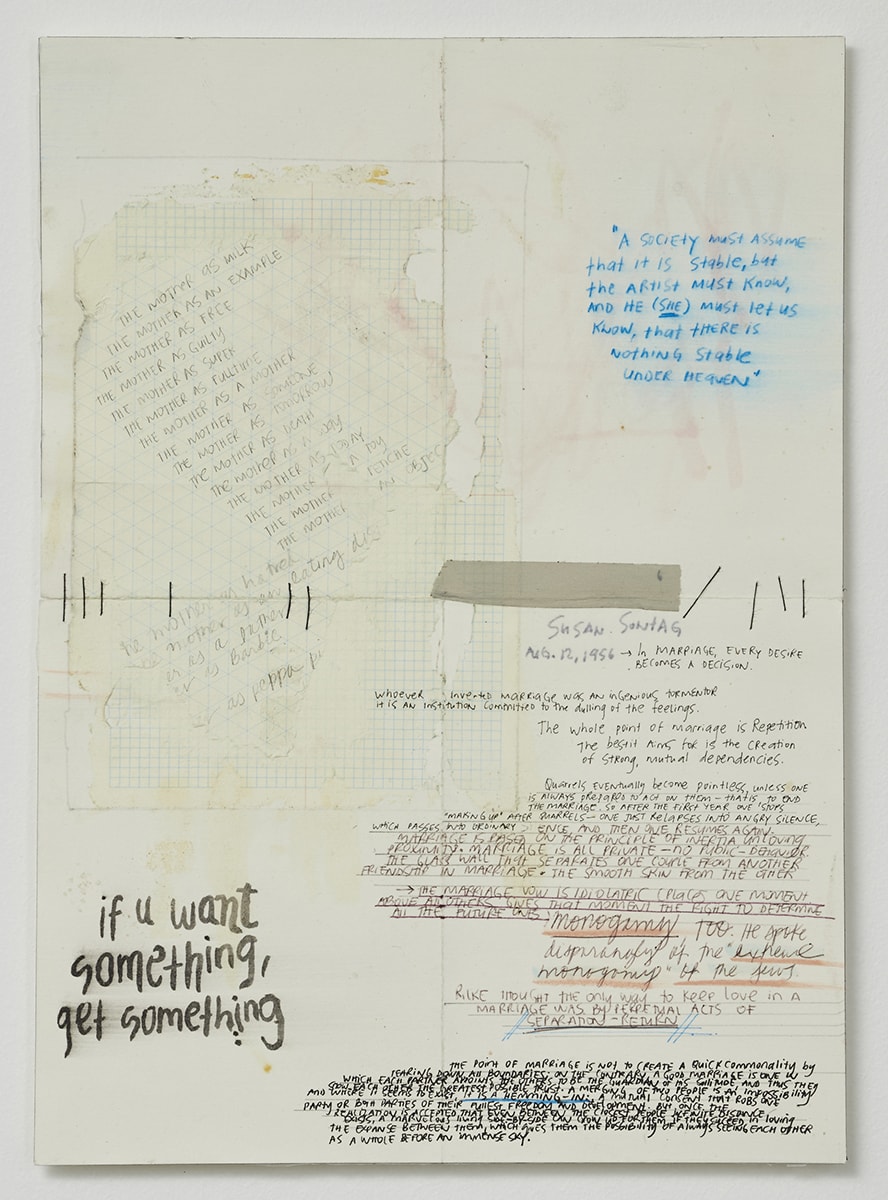 THE MOTHER AS MILK
THE MOTHER AS AN EXAMPLE
THE MOTHER AS FREE
THE MOTHER AS GUILTY
THE MOTHER AS SUPER
THE MOTHER AS FULLTIME
THE MOTHER AS A MOTHER
THE MOTHER AS SOMEONE
THE MOTHER AS TOMORROW
THE MOTHER AS DEATH
THE MOTHER AS A
THE MOTHER AS TODAY
THE MOTHER A TOY
THE MOTHER FETICHE
THE MOTHER AN OBJEC
the mother as hatred
mother as an eating dis
er as a father
er as Barbie
as peppa pi
"A SOCIETY MUST ASSUME
that it is Stable, but
the ARTIST MUST KNOW,
AND HE (SHE) MUST let us
KNOW, that THERE IS
NOTHING Stable
UNDER HEAVEN"
SUSAN. SONTAG
AUG. 12, 1956 → IN MARRIAGE, EVERY DESIRE
BECOMES A DECISION.
Whoever inverted MARRIAGE WAS AN INGENIOUS TORMENTOR
it is AN INSTITUTION COMMITTED to the dulling of the feelings.
The whole point of marriage is Repetition
The best it Aims for is the CREATION
of STRONG, mutual dependencies.
Quarrels EVENTUALLY become pointless, unless one
is ALWAYS PREPARED to ACT ON THEM - that is to END
THE MARRIAGE. SO AFTER THE FIRST YEAR ONE STOPS
"MAKING UP" AFTER QUARRELS - ONE JUST RELAPSES INTO ANGRY SILENCE,
WHICH PASSES INTO ORDINARY ENCE, AND THEN ONE RESUMES AGAIN.
MARRIAGE IS BASED ON THE PRINCIPLE OF INERTIA UNLOVING
PROXIMITY. MARRIAGE IS ALL PRIVATE - NO PUBLIC - BEHAVIOR
THE GLASS WALL THAT SEPARATES ONE COUPLE FROM ANOTHER
FRIENDSHIP IN MARRIAGE. THE SMOOTH SKIN FROM THE OTHER
→ THE MARRIAGE VOW IS IDOLATRIC (PLACES ONE MOMENT
ABOVE ALL OTHERS GIVES THAT MOMENT THE RIGHT TO DETERMINE
All THE FUTURE ONES) MONOGAMY, TOO. He spoke
disparangly of the "extreme
monogamy" of the Jews.
RILKE THOUGHT THE only way to keep LOVE IN A
MARRIAGE WAS BY PERPETUAL ACTS OF
SEPARATION-RETURN
if u want
something,
get something
THE POINT OF MARRIAGE IS NOT TO CREATE A QUICK COMMONALITY BY
TEARING DOWN ALL BOUNDARIES; ON THE CONTRARY, A GOOD MARRIAGE IS ONE IN
WHICH EACH PARTNER APPOINTS THE OTHERS TO BE THE GUARDIAN OF HIS SOLITUDE, AND THUS THEY
SHOW EACH OTHER THE GREATEST POSSIBLE TRUST. A MERGING OF TWO PEOPLE IS AN IMPOSSIBILITY
AND WHERE IT SEEMS TO EXIST, IT IS A HEMMING-IN, A MUTUAL CONSENT THAT ROBS ONE
PARTY OR BOTH PARTIES OF THEIR FULLEST FREEDOM AND DEVELOPMENT. BUT ONCE THE
REALIZATION IS ACCEPTED THAT EVEN BETWEEN THE CLOSEST PEOPLE INFINITE DISTANCE
A MARVELOUS LIVING SIDE-BY-SIDE CAN GROW UP FOR THEM, IF THEY SUCCEED IN loving
THE EXPANSE BETWEEN THEM, WHICH GIVES THEM THE POSSIBILITY OF ALWAYS SEEING EACH OTHER
AS A WHOLE BEFORE AN IMMENSE SKY.